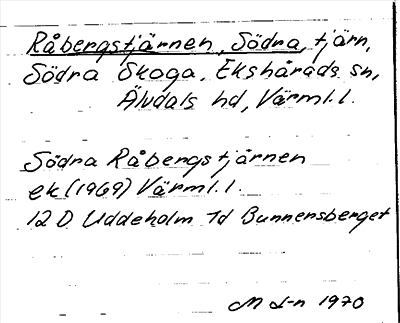 Råbergstjärnen, Södra, tjärn,
Södra Skoga, Ekshärads sn,
Älvdals hd, Värml. l.
Södra Råbergstjärnen
ek (1969) Värml. l.
12 D Uddeholm 1d Bunnersberget
M L-n 1970